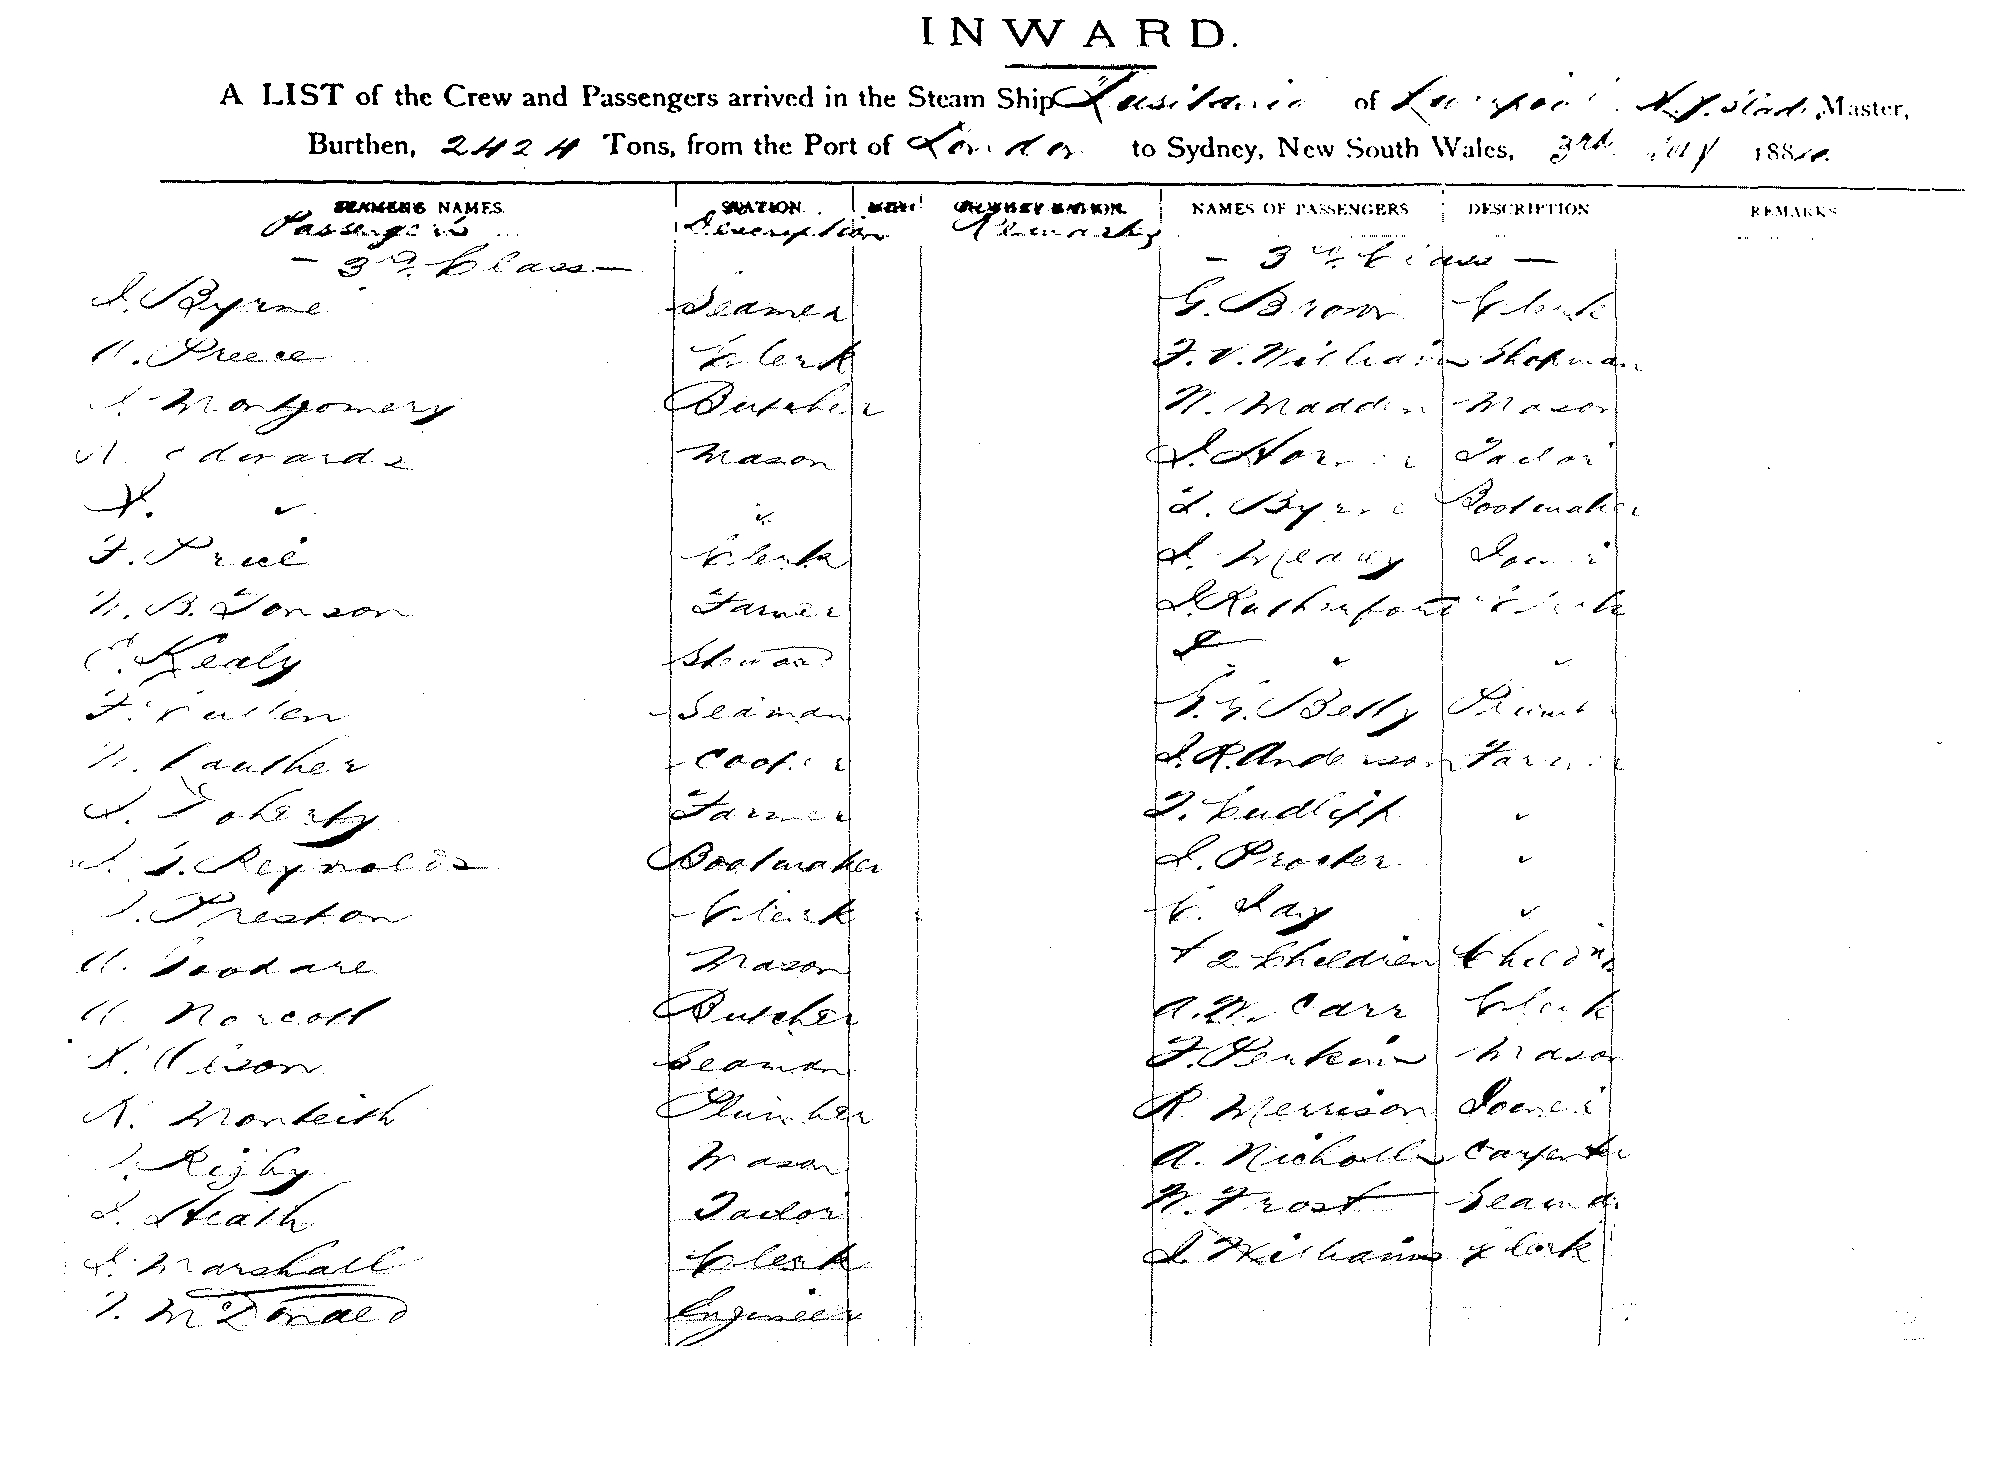 INWARD.
A LIST of the Crew and Passengers arrived in the Steam Ship Lusitania of Liverpool Master,
Burthen, 2424 Tons, from the Port of London to Sydney, New South Wales, 3rd 188
SEAMENS NAMES STATION AGE NAMES OF PASSENGERS DESCRIPTION REMARKS
Passengers Description Remarks
— 3rd Class — — 3rd Class —
J. Byrne Seaman G. Brown Clerk
H. Preece Clerk F. V. Williams Shopman
J. Montgomery Butcher W. Madden Mason
Edwards Mason J. Tailor
" " T. Byrne Bootmaker
F. Price Clerk J. Meary Joiner
W. B. Jonson Farmer J. Rutherford Clerk
E. Kealy Steward J " "
F. Cullen Seaman Betty Plumb
W. Panther Cooper J. R. Anderson Farmer
J. Doherty Farmer T. Cudlipp "
J. Reynolds Bootmaker J. Procter "
J. Preston Clerk C. Day "
H. Goodare Mason + 2 Children Children
H. Norcott Butcher A. W. Carr Clerk
Seaman F. Perkins Mason
Monteith Plumber R. Merrison Joiner
J. Rigby Mason A. Nicholls Carpenter
J. Heath Tailor W. Frost Seaman
J. Marshall Clerk J. Williams Clerk
T. McDonald Engineer